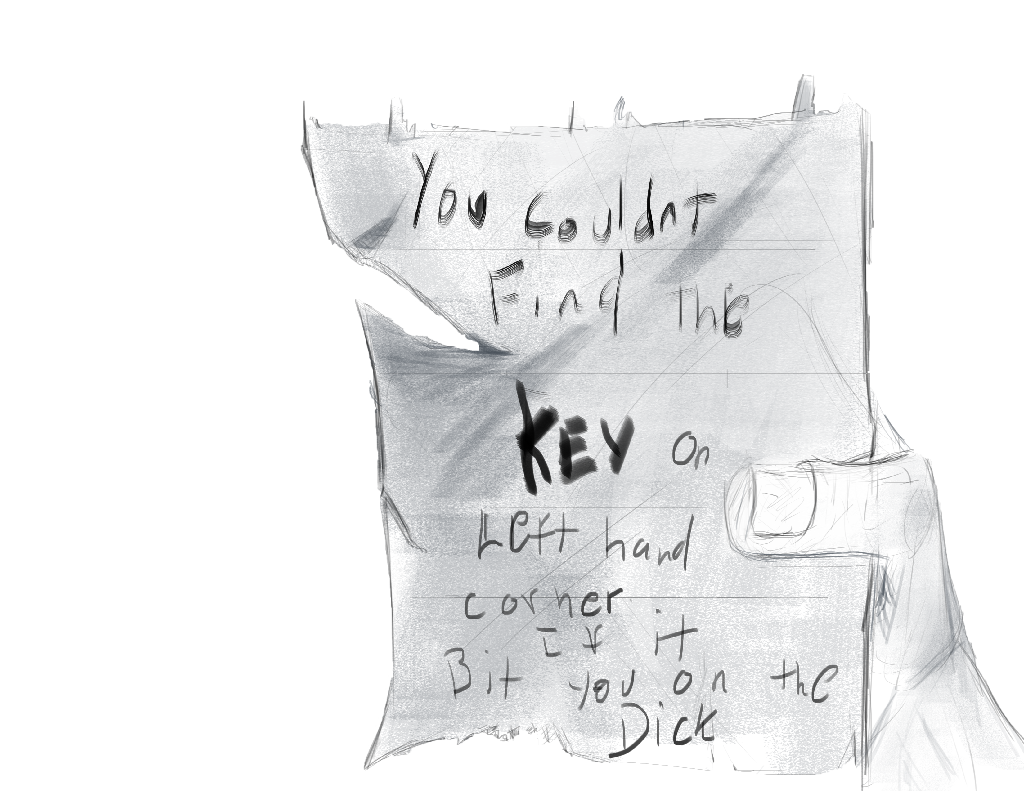 You couldnt
Find the
KEY on
Left hand
corner
If it
Bit you on the
Dick